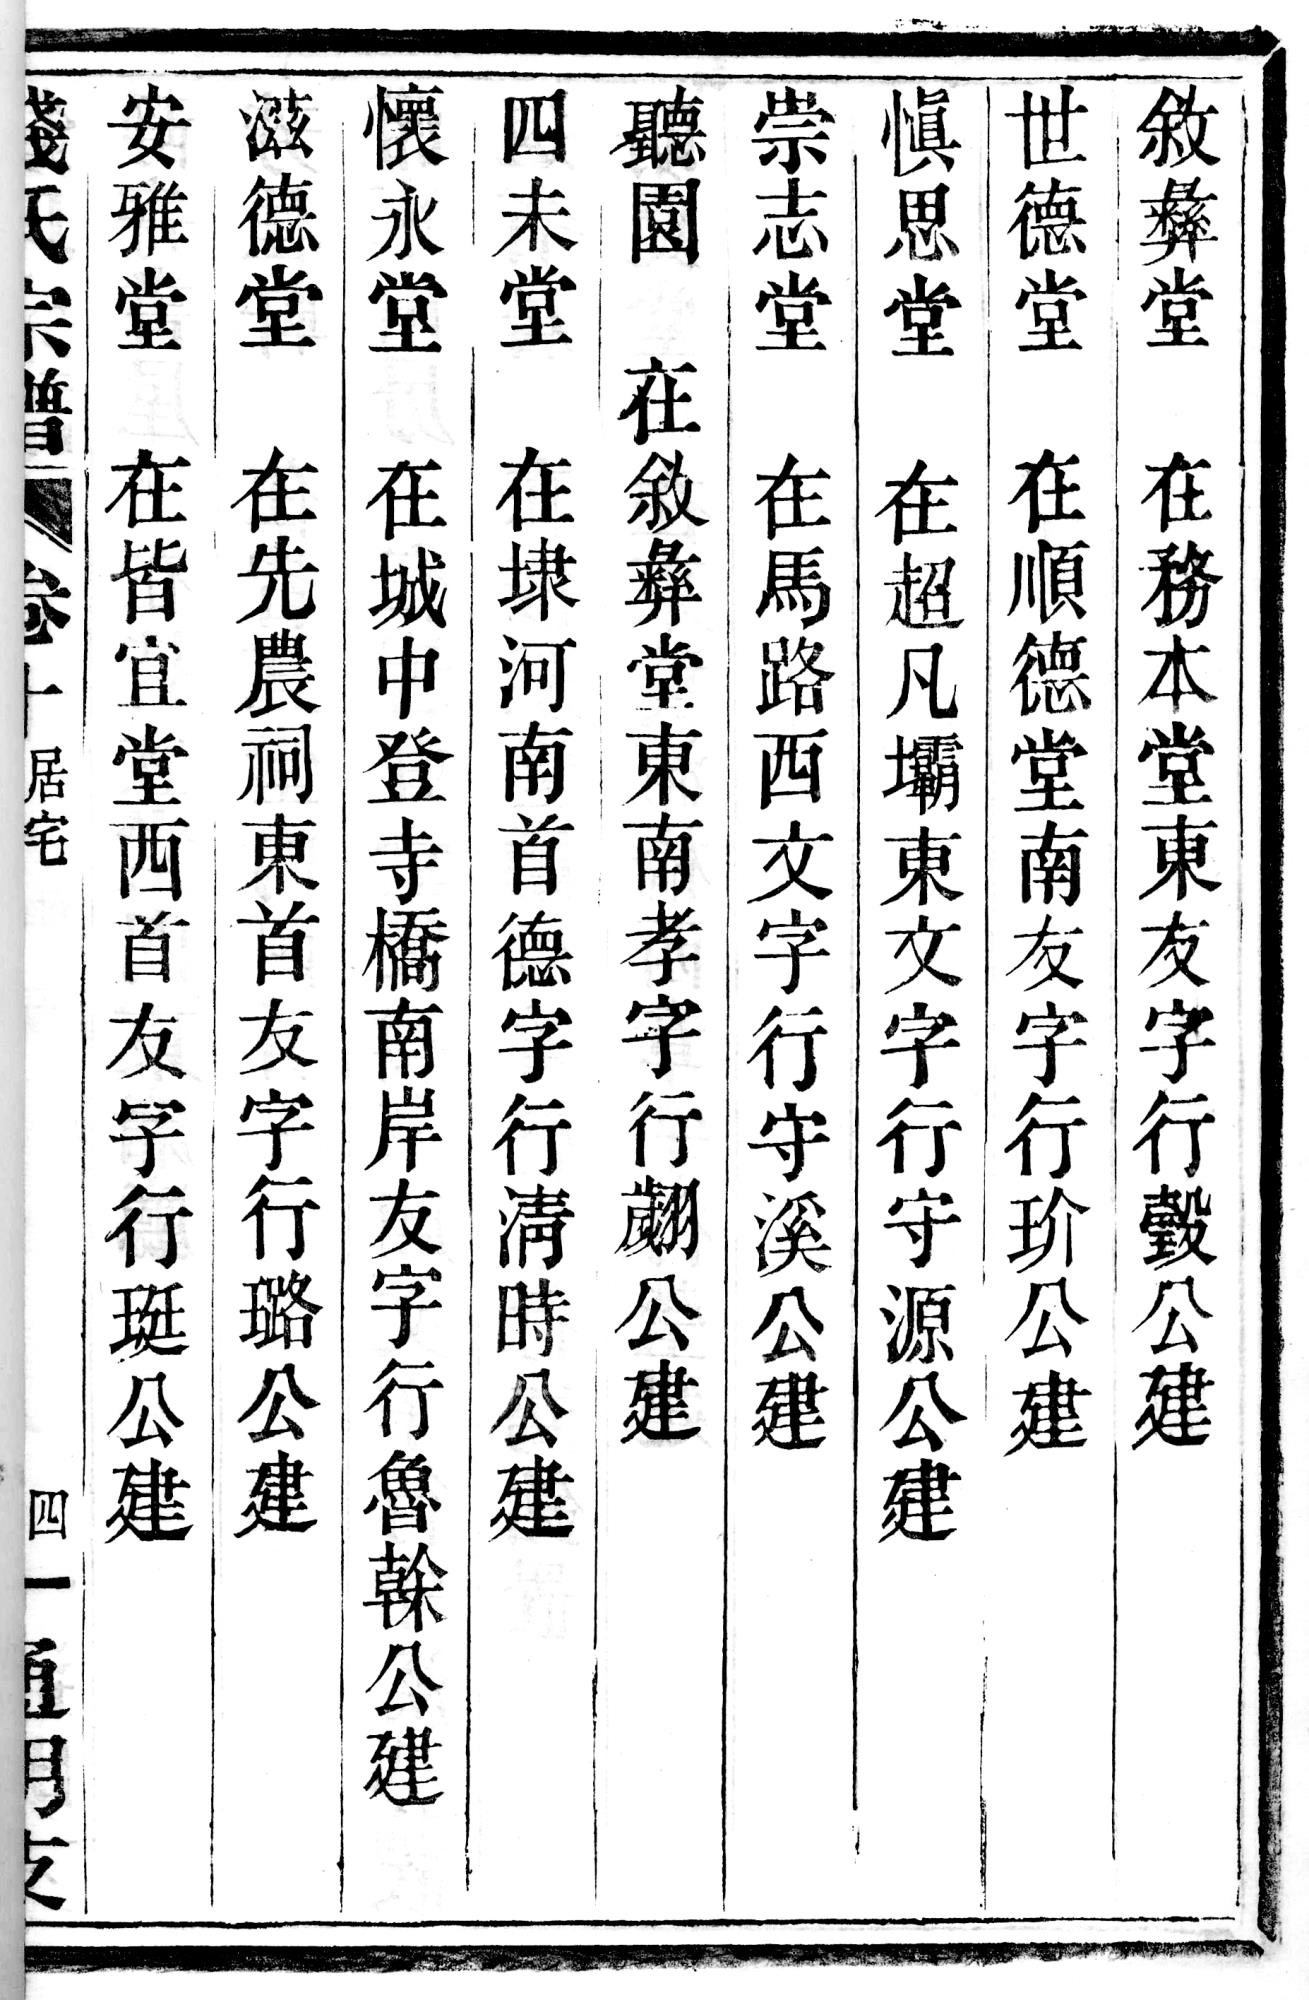 敘彜堂　在務本堂東友字行瑴公建
世德堂　在順德堂南友字行玠公建
愼思堂　在超凡壩東文字行守源公建
崇志堂　在馬路西文字行守溪公建
聽園　在敘彜堂東南孝字行翽公建
四未堂　在埭河南首德字行淸時公建
懷永堂　在城中登寺橋南岸友字行魯榦公建
滋德堂　在先農祠東首友字行璐公建
安雅堂　在皆宜堂西首友字行珽公建
錢氏宗譜　卷十　居宅　四　通明支